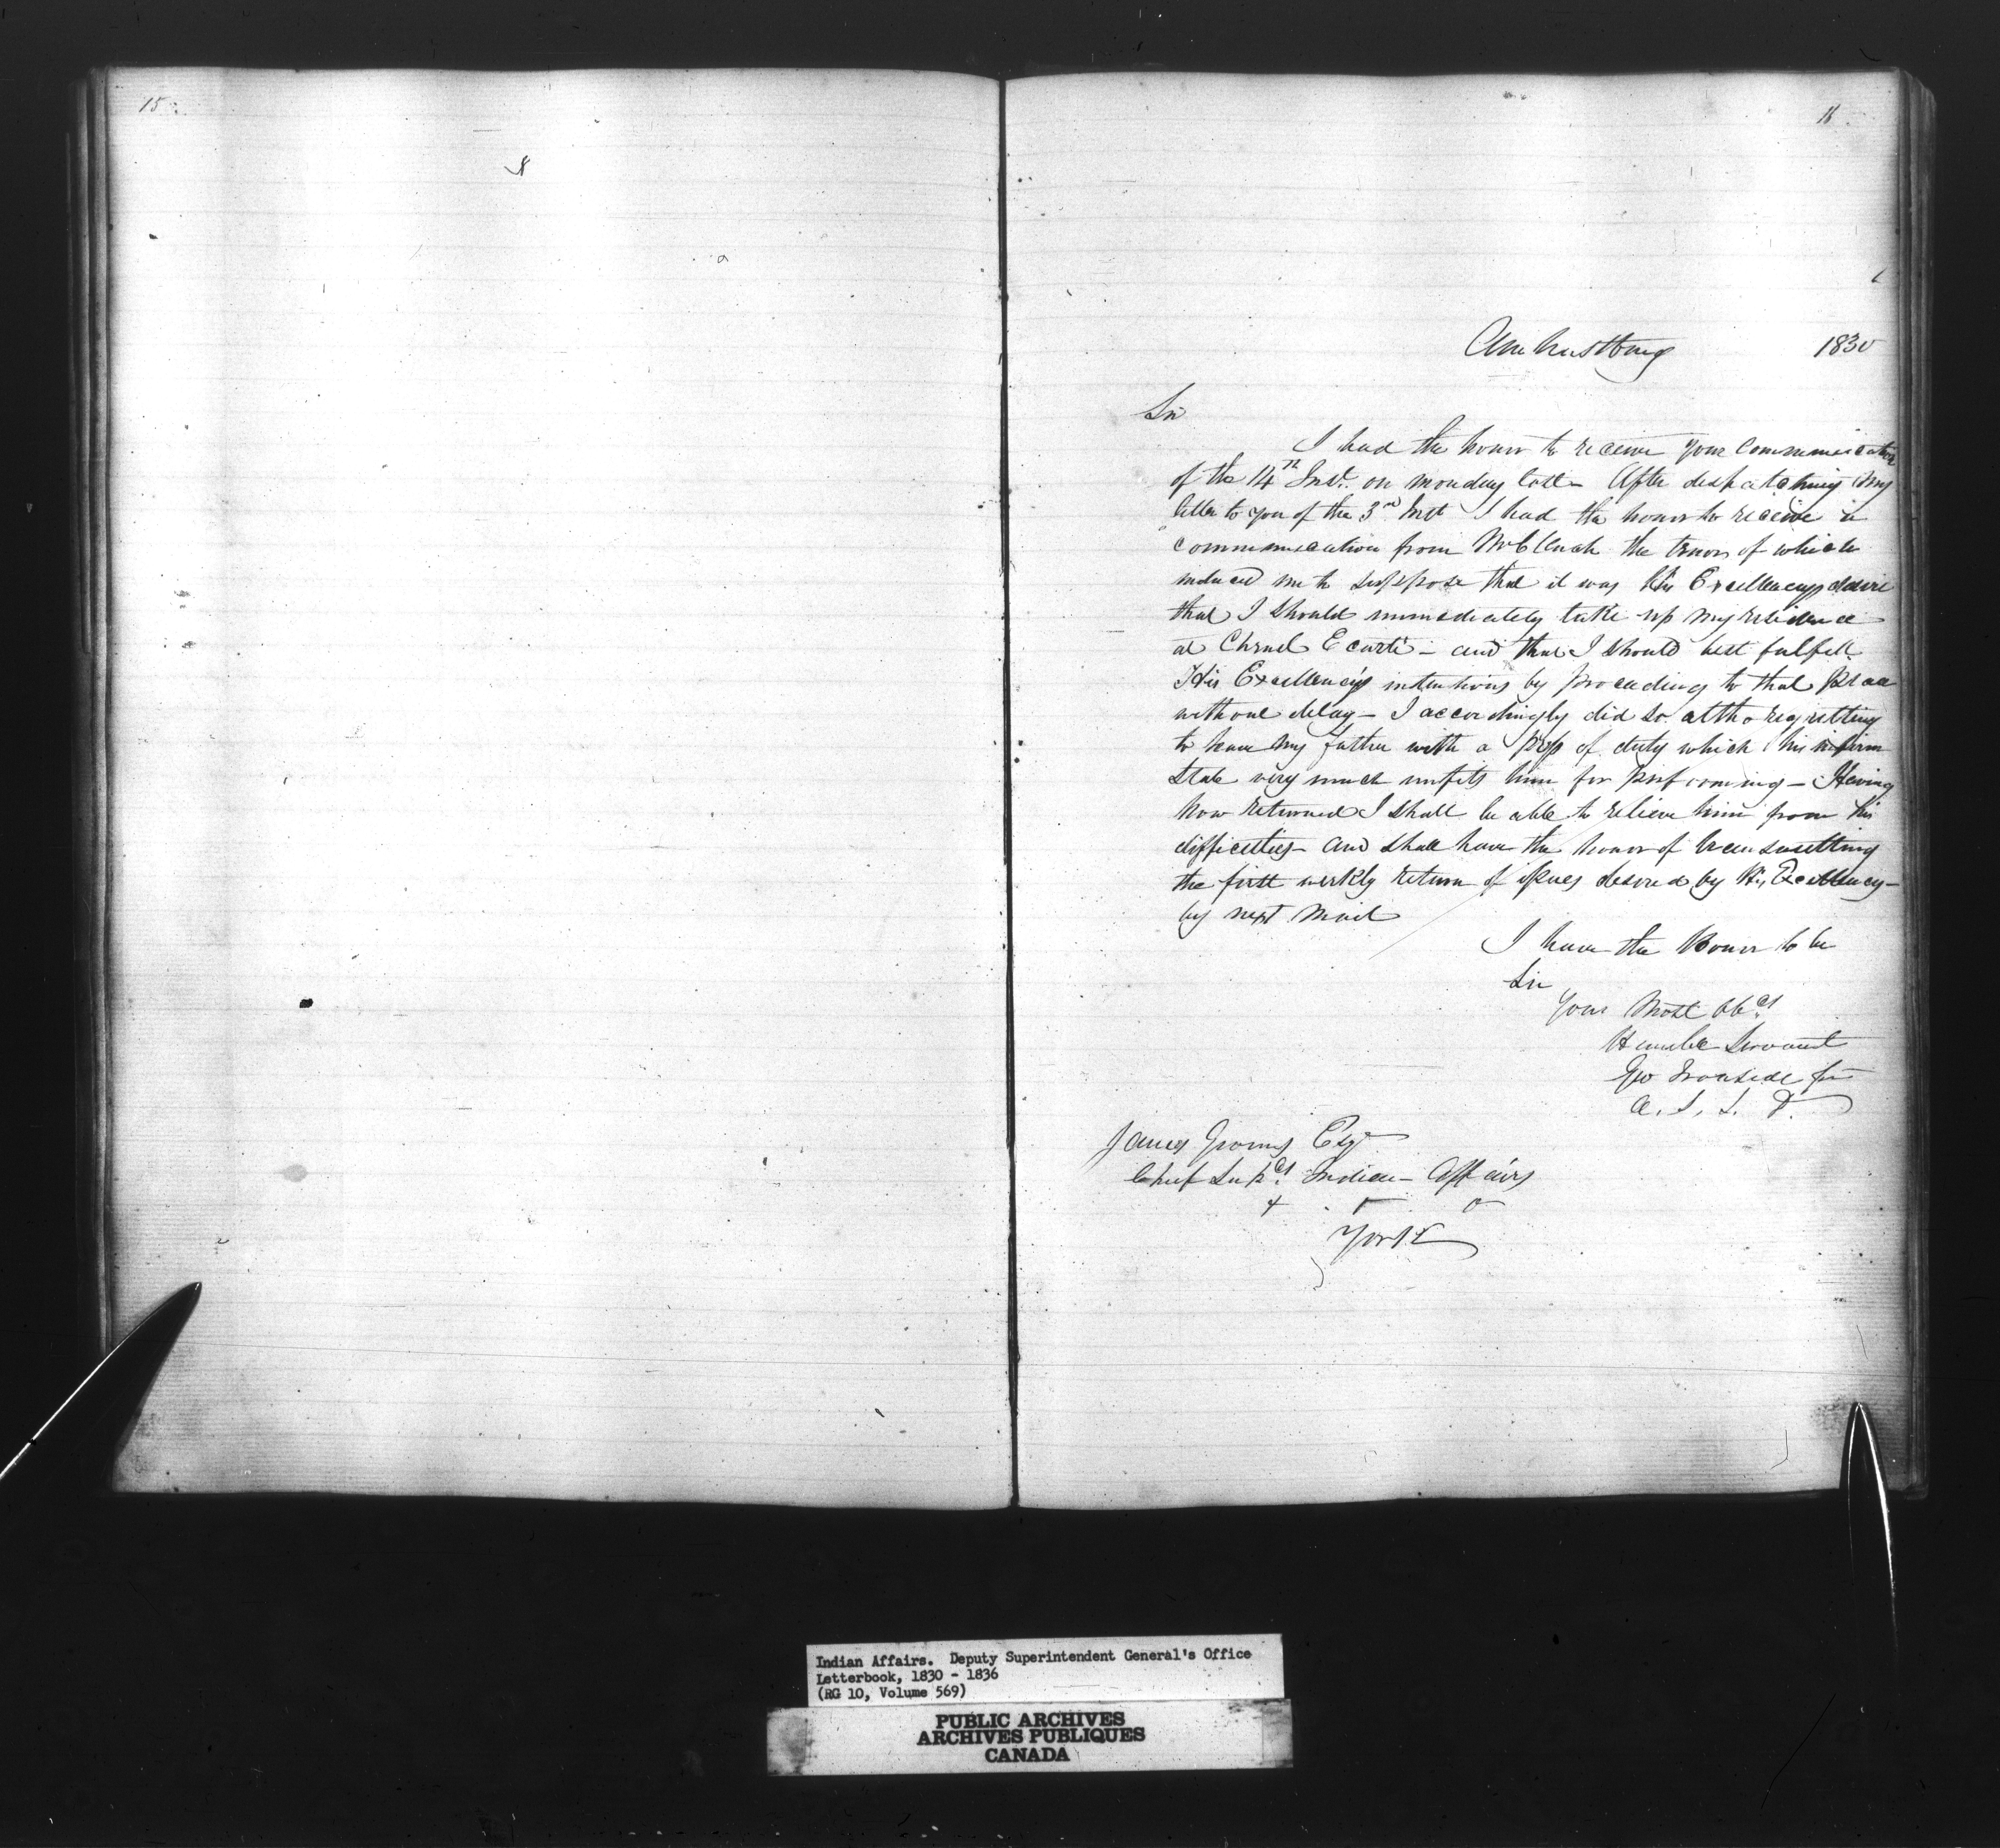 15
16
Amherstburg 1830
Sir
I had the honor to receive your communication
of the 14th Inst. on monday last – After despatching my
letter to you of the 3rd Inst I had the honor to receive a
communication from the tenor of which
induced me to suppose that it was His Excellencys desire
that I should immediately take up my residence
at Chenal Ecarté – and that I should best fulfill
His Excellency's intentions by proceeding to that place
without delay – I accordingly did so altho regretting
to leave my father with a press of duty which his infirm
state very much unfits him for performing – Having
now returned I shall be able to relieve him from his
difficulties – and shall have the honor of transmitting
the first weekly return of issues desired by His Excellency –
by next Mail
I have the Honor to be
Sir
Your Most Obdt
Humble Servant
Geo Ironside Jun
A. S. I. D.
James Givins Esqr
Chief Supdt Indian Affairs
York
Indian Affairs. Deputy Superintendent General's Office
Letterbook, 1830 - 1836
(RG 10, Volume 569)
PUBLIC ARCHIVES
ARCHIVES PUBLIQUES
CANADA